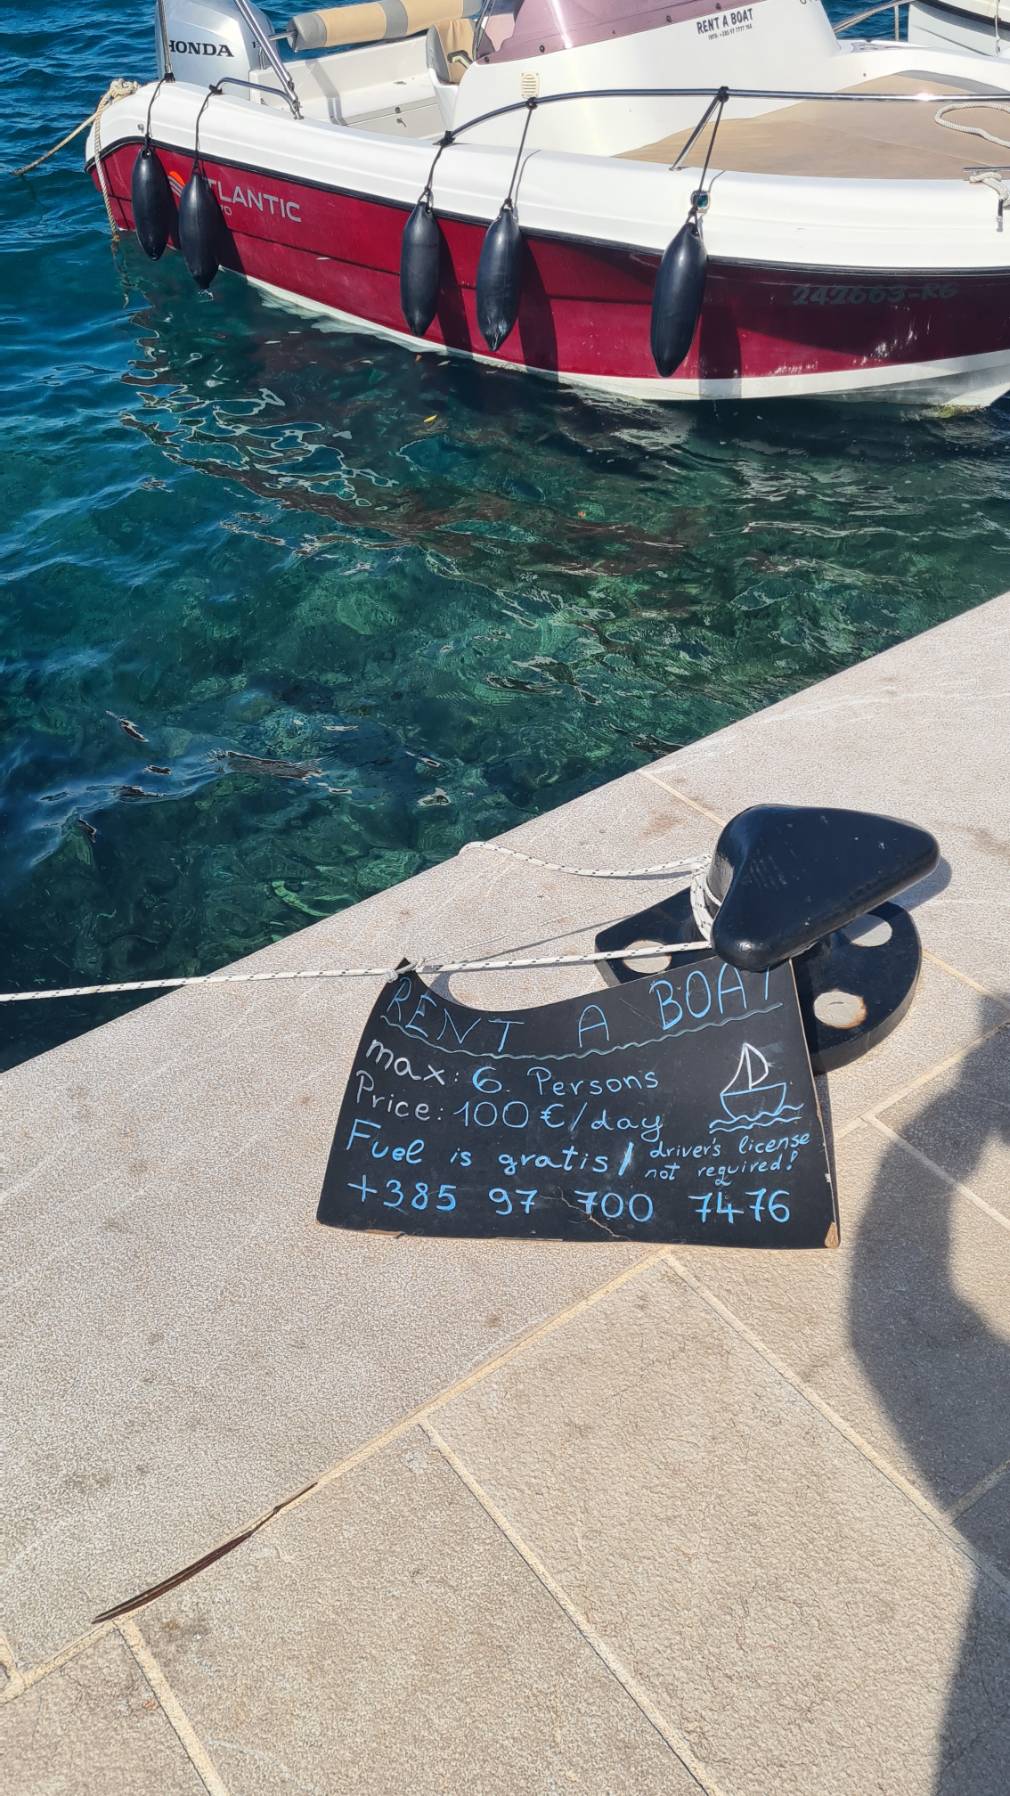 HONDA
RENT A BOAT
ATLANTIC
242663-RG
RENT A BOAT
max: 6 Persons
Price: 100€/day
Fuel is gratis/ driver's license
not required!
+385 97 700 7476